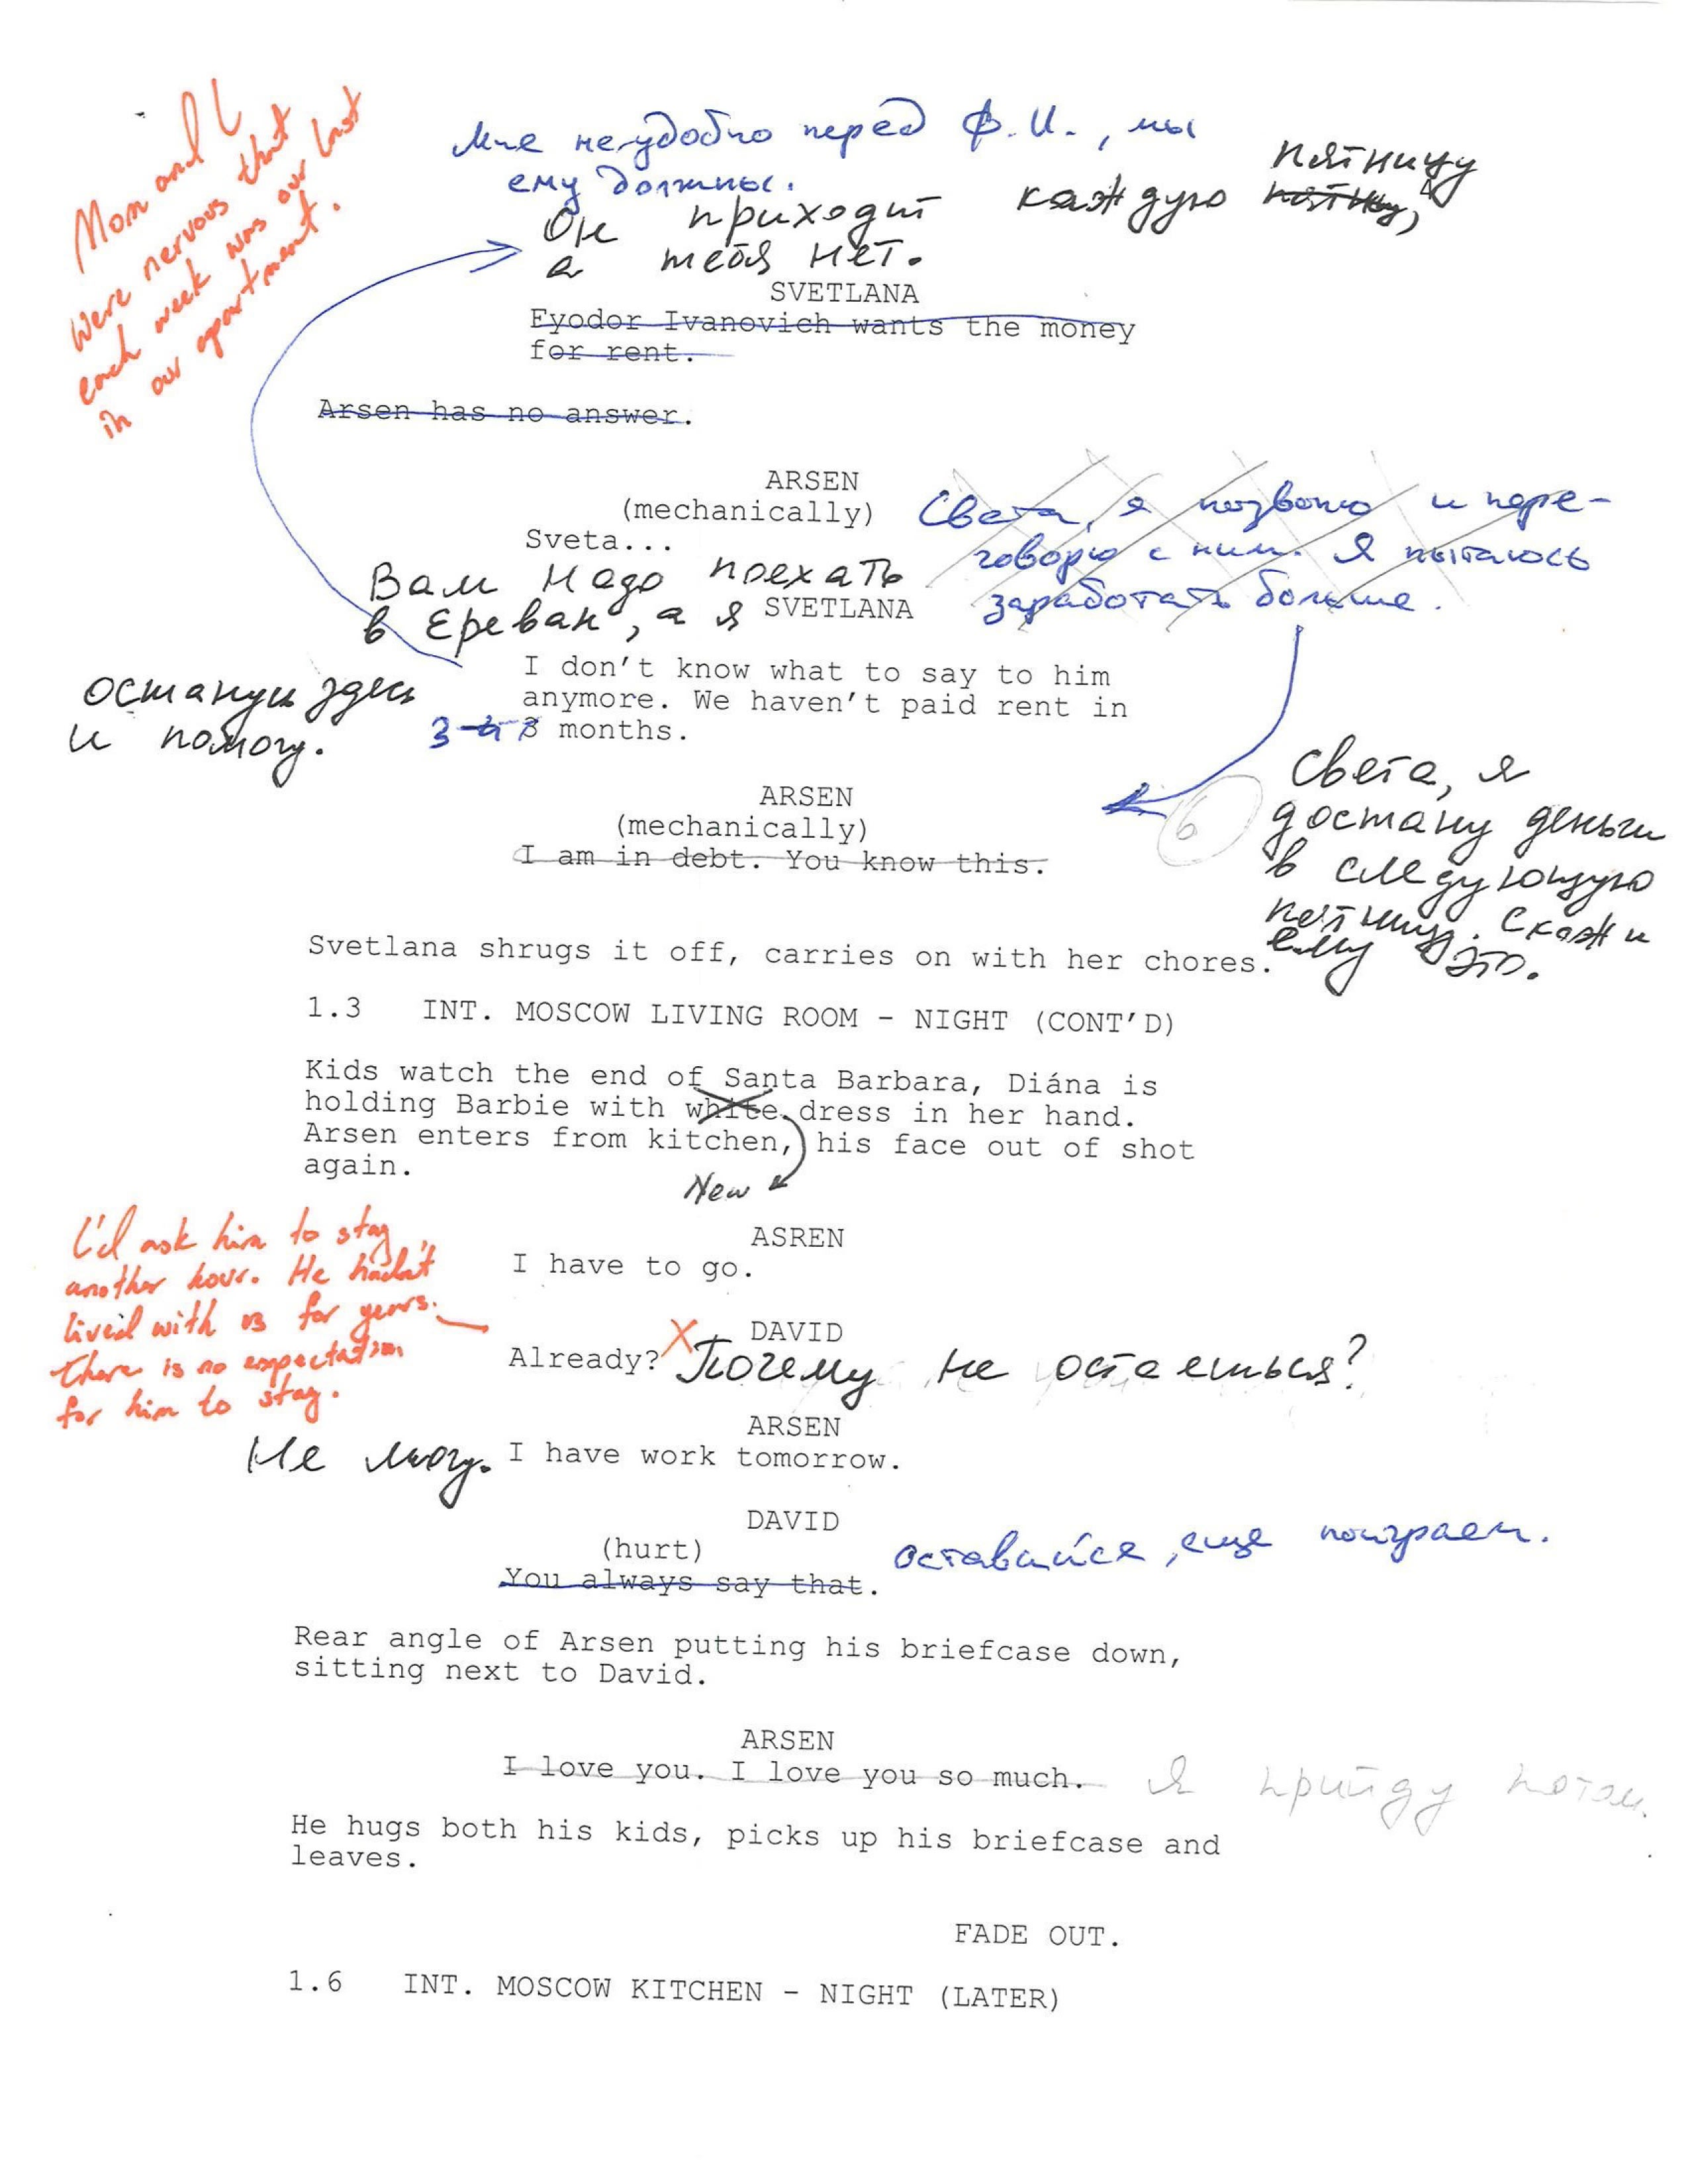 Mom and I
were nervous that
each week was our last
in our apartment.
Мне неудобно перед Ф.И., мы
ему должны.
Он приходит каждую пятницу,
пятницу
а тебя нет.
SVETLANA
Fyodor Ivanovich wants the money
for rent.
Arsen has no answer.
ARSEN
(mechanically)
Sveta...
Света, я позвоню и пере-
говорю с ним. Я пытаюсь
заработать больше.
Вам надо поехать
в Ереван, а я
останусь здесь
и помогу.
SVETLANA
I don't know what to say to him
anymore. We haven't paid rent in
3 months.
ARSEN
(mechanically)
I am in debt. You know this.
6
Света, я
достану деньги
в следующую
пятницу. Скажи
ему это.
Svetlana shrugs it off, carries on with her chores.
1.3 INT. MOSCOW LIVING ROOM - NIGHT (CONT'D)
Kids watch the end of Santa Barbara, Diána is
holding Barbie with white dress in her hand.
Arsen enters from kitchen, his face out of shot
again.
New
ASREN
I have to go.
I'd ask him to stay
another hour. He hadn't
lived with us for years.
There is no expectation
for him to stay.
DAVID
Already? X Почему не остаешься?
ARSEN
Не могу. I have work tomorrow.
DAVID
(hurt)
You always say that.
оставайся, еще поиграем.
Rear angle of Arsen putting his briefcase down,
sitting next to David.
ARSEN
I love you. I love you so much. Я прийду потом.
He hugs both his kids, picks up his briefcase and
leaves.
FADE OUT.
1.6 INT. MOSCOW KITCHEN - NIGHT (LATER)